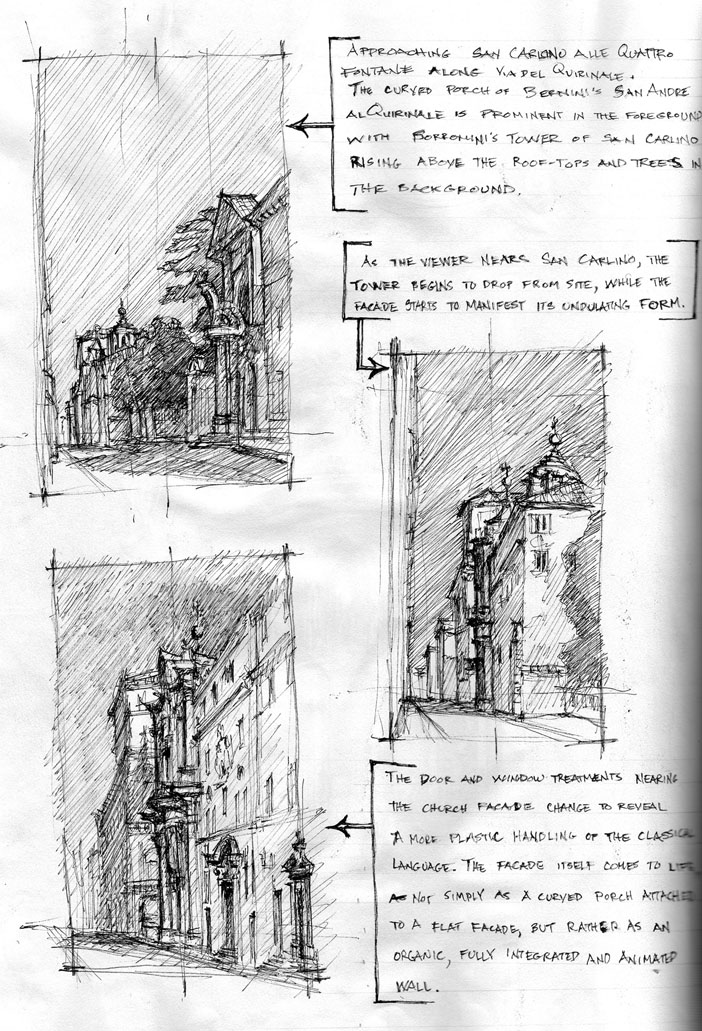 APPROACHING SAN CARLINO ALLE QUATTRO
FONTANE ALONG VIA DEL QUIRINALE.
THE CURVED PORCH OF BERNINI'S SAN ANDRE
AL QUIRINALE IS PROMINENT IN THE FOREGROUND
WITH BORROMINI'S TOWER OF SAN CARLINO
RISING ABOVE THE ROOF-TOPS AND TREES IN
THE BACKGROUND.
AS THE VIEWER NEARS SAN CARLINO, THE
TOWER BEGINS TO DROP FROM SITE, WHILE THE
FACADE STARTS TO MANIFEST ITS UNDULATING FORM.
THE DOOR AND WINDOW TREATMENTS NEARING
THE CHURCH FACADE CHANGE TO REVEAL
A MORE PLASTIC HANDLING OF THE CLASSICAL
LANGUAGE. THE FACADE ITSELF COMES TO LIFE,
NOT SIMPLY AS A CURVED PORCH ATTACHED
TO A FLAT FACADE, BUT RATHER AS AN
ORGANIC, FULLY INTEGRATED AND ANIMATED
WALL.